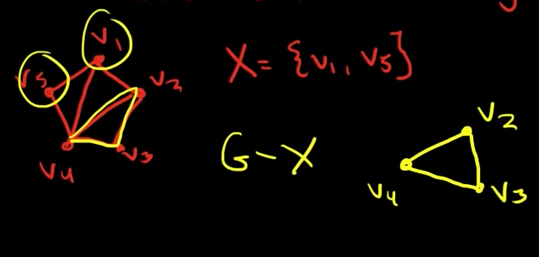 v₁
v₅
v₂
v₄
v₃
X = {v₁, v₅}
G - X
v₂
v₄
v₃